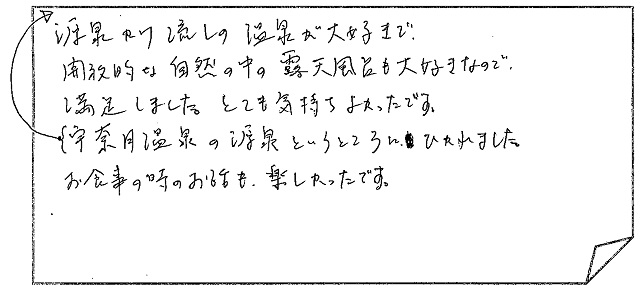 源泉かけ流しの温泉が大好きで、
開放的な自然の中の露天風呂も大好きなので、
満足しました。とても気持ちよかったです。
宇奈月温泉の源泉というところにひかれました。
お食事の時のお話も、楽しかったです。